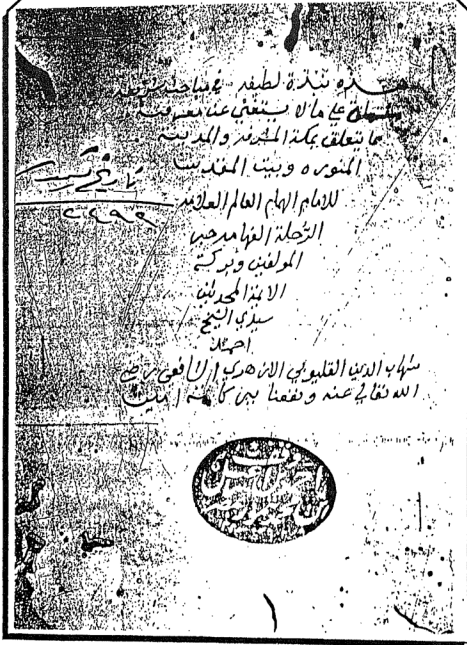 هذه نبذة لطيفه في مباحث شريفه
مشتملة علي ما لا يستغني عن معرفته
مما يتعلق بمكة المشرفة والمدينه
المنوره وبيت المقدس
للامام الهمام العالم العلامه
الرحلة الفهامه حبر
المولفين وبركة
الائمة المحدثين
سيدي الشيخ
احمد
شهاب الدين القليوبي الازهري الشافعي رضي
الله تعالي عنه ونفعنا ببركاته امين
تاريخ
٢٢٩٩